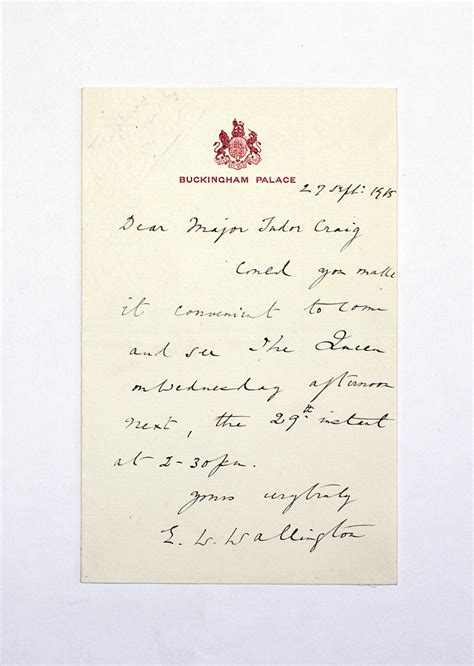 BUCKINGHAM PALACE
27 Sept: 1915
Dear Major Tudor Craig
Could you make
it convenient to come
and see The Queen
on Wednesday afternoon
next, the 29th instant
at 2-30 pm.
yours very truly
E. W. Wallington